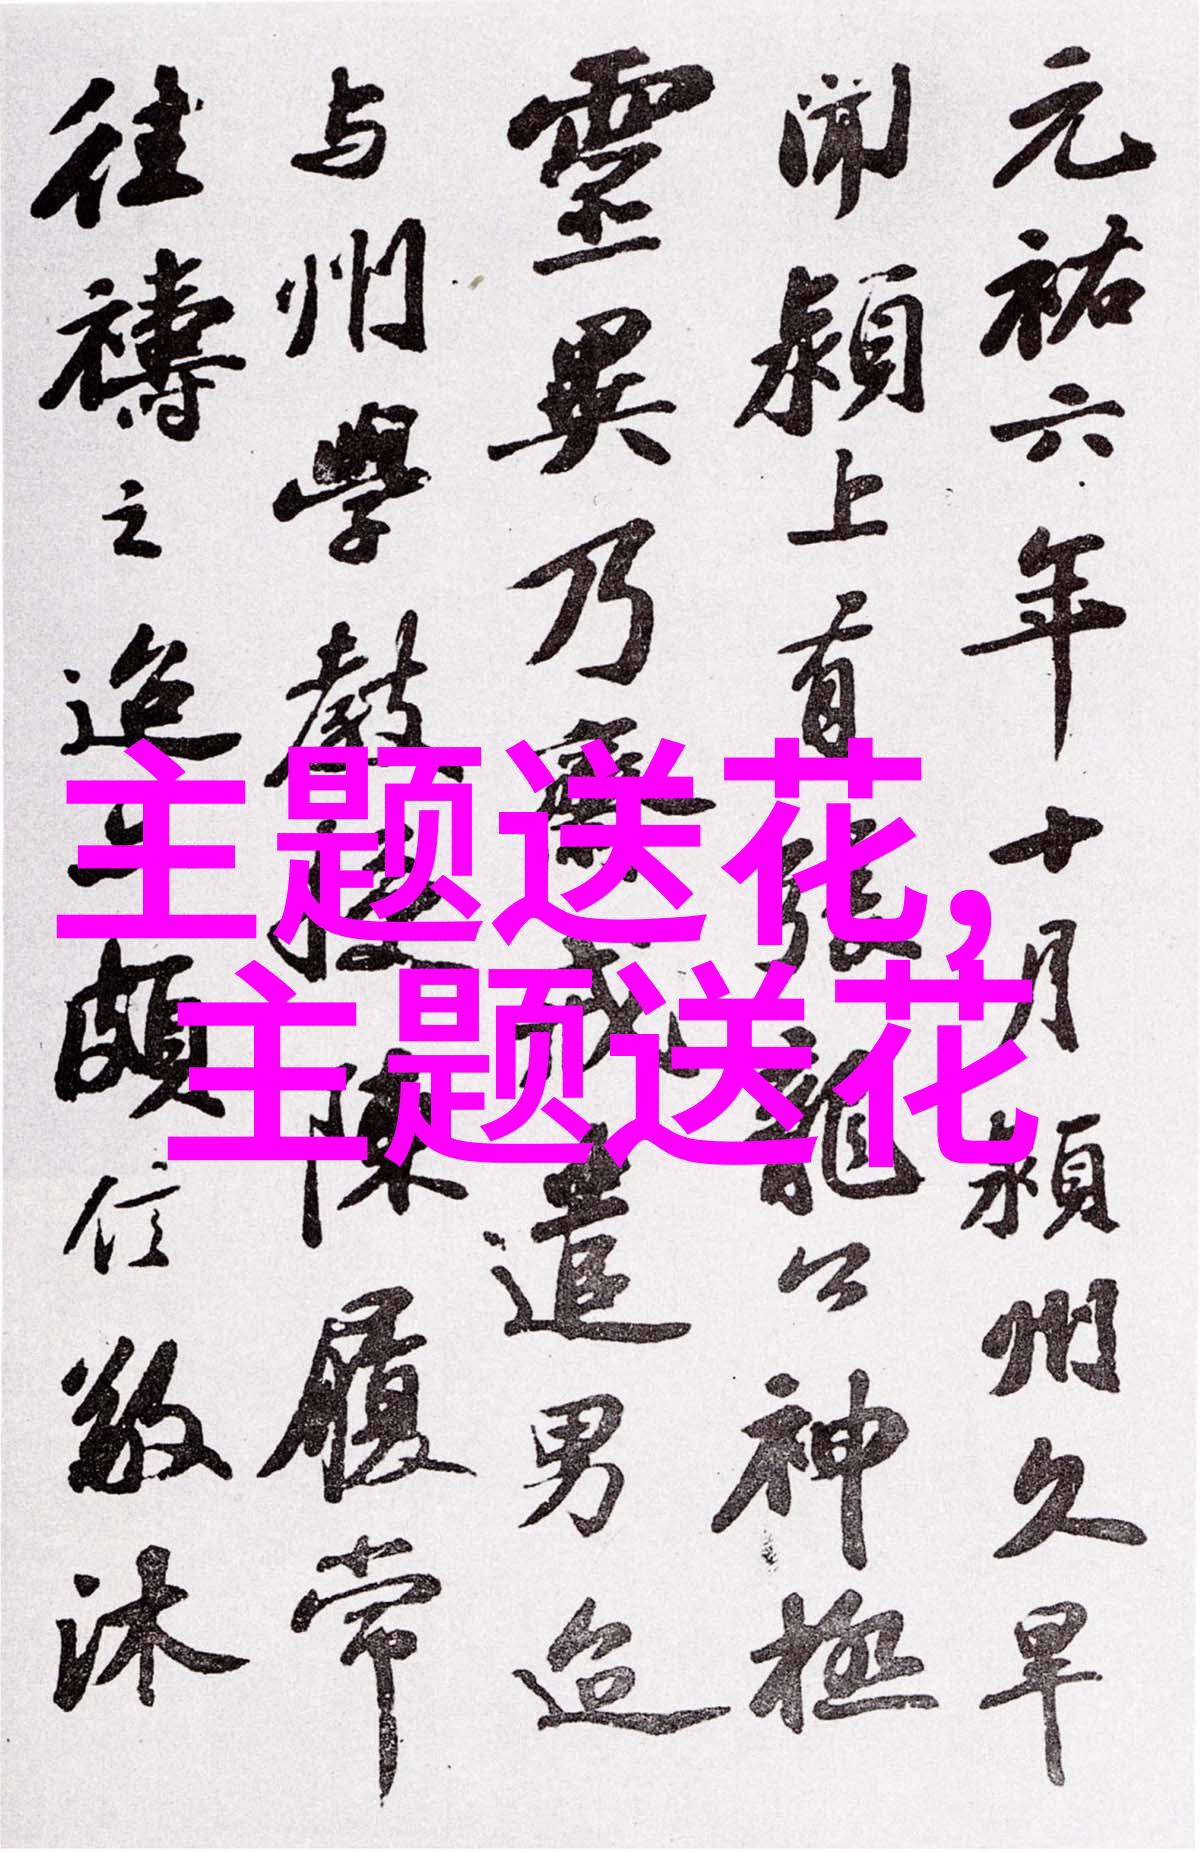 元祐六年十月潁州久旱
聞潁上有張龍公神極
靈異乃齋戒遣男迨
与州學教授陳履常
往禱之迨亦頗信敬沐
主题送花,
主题送花